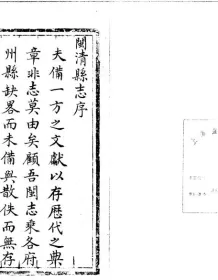 閩清縣志序
夫備一方之文獻以存歷代之典
章非志莫由矣顧吾閩志乘各府
州縣缺畧而未備與散佚而無存